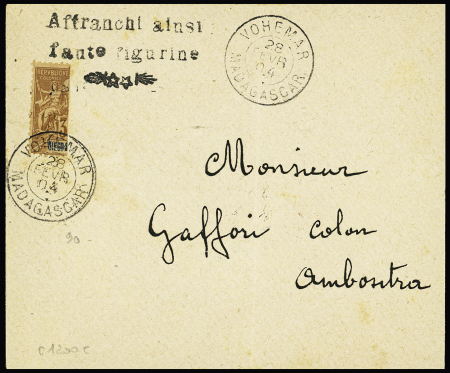 Affranchi ainsi
faute figurine
VOHEMAR
28
FEVR
04
MADAGASCAR
REPUBLIQUE
VOHEMAR
28
FEVR
04
MADAGASCAR
90
Monsieur
Gaffori colon
Ambositra